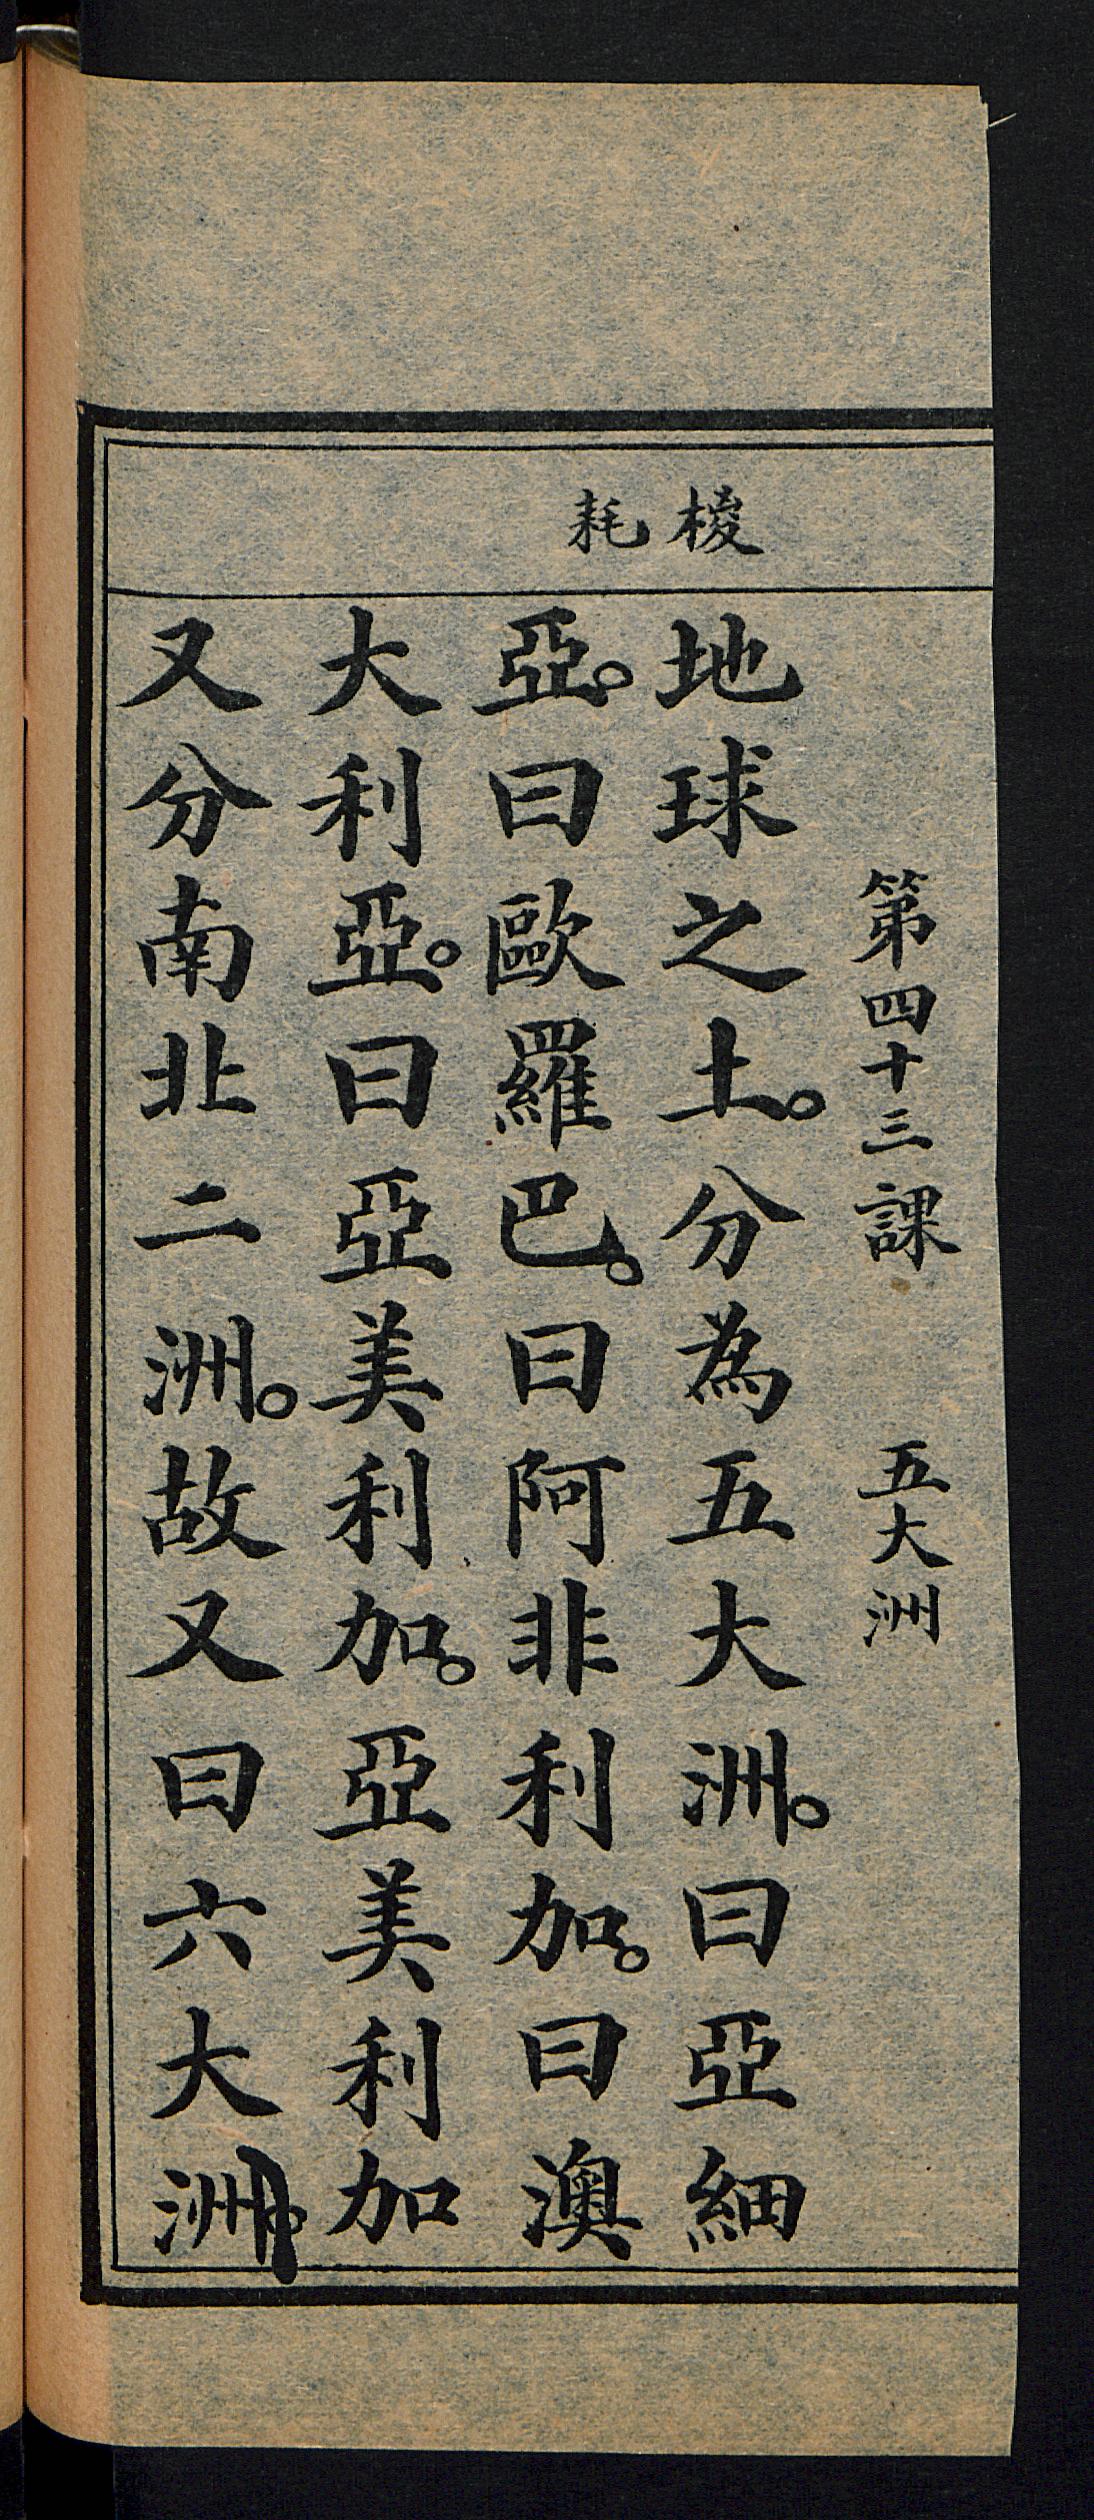 梭耗
第四十三課　五大洲
地球之土。分為五大洲。曰亞細
亞。曰歐羅巴。曰阿非利加。曰澳
大利亞。曰亞美利加。亞美利加
又分南北二洲。故又曰六大洲。